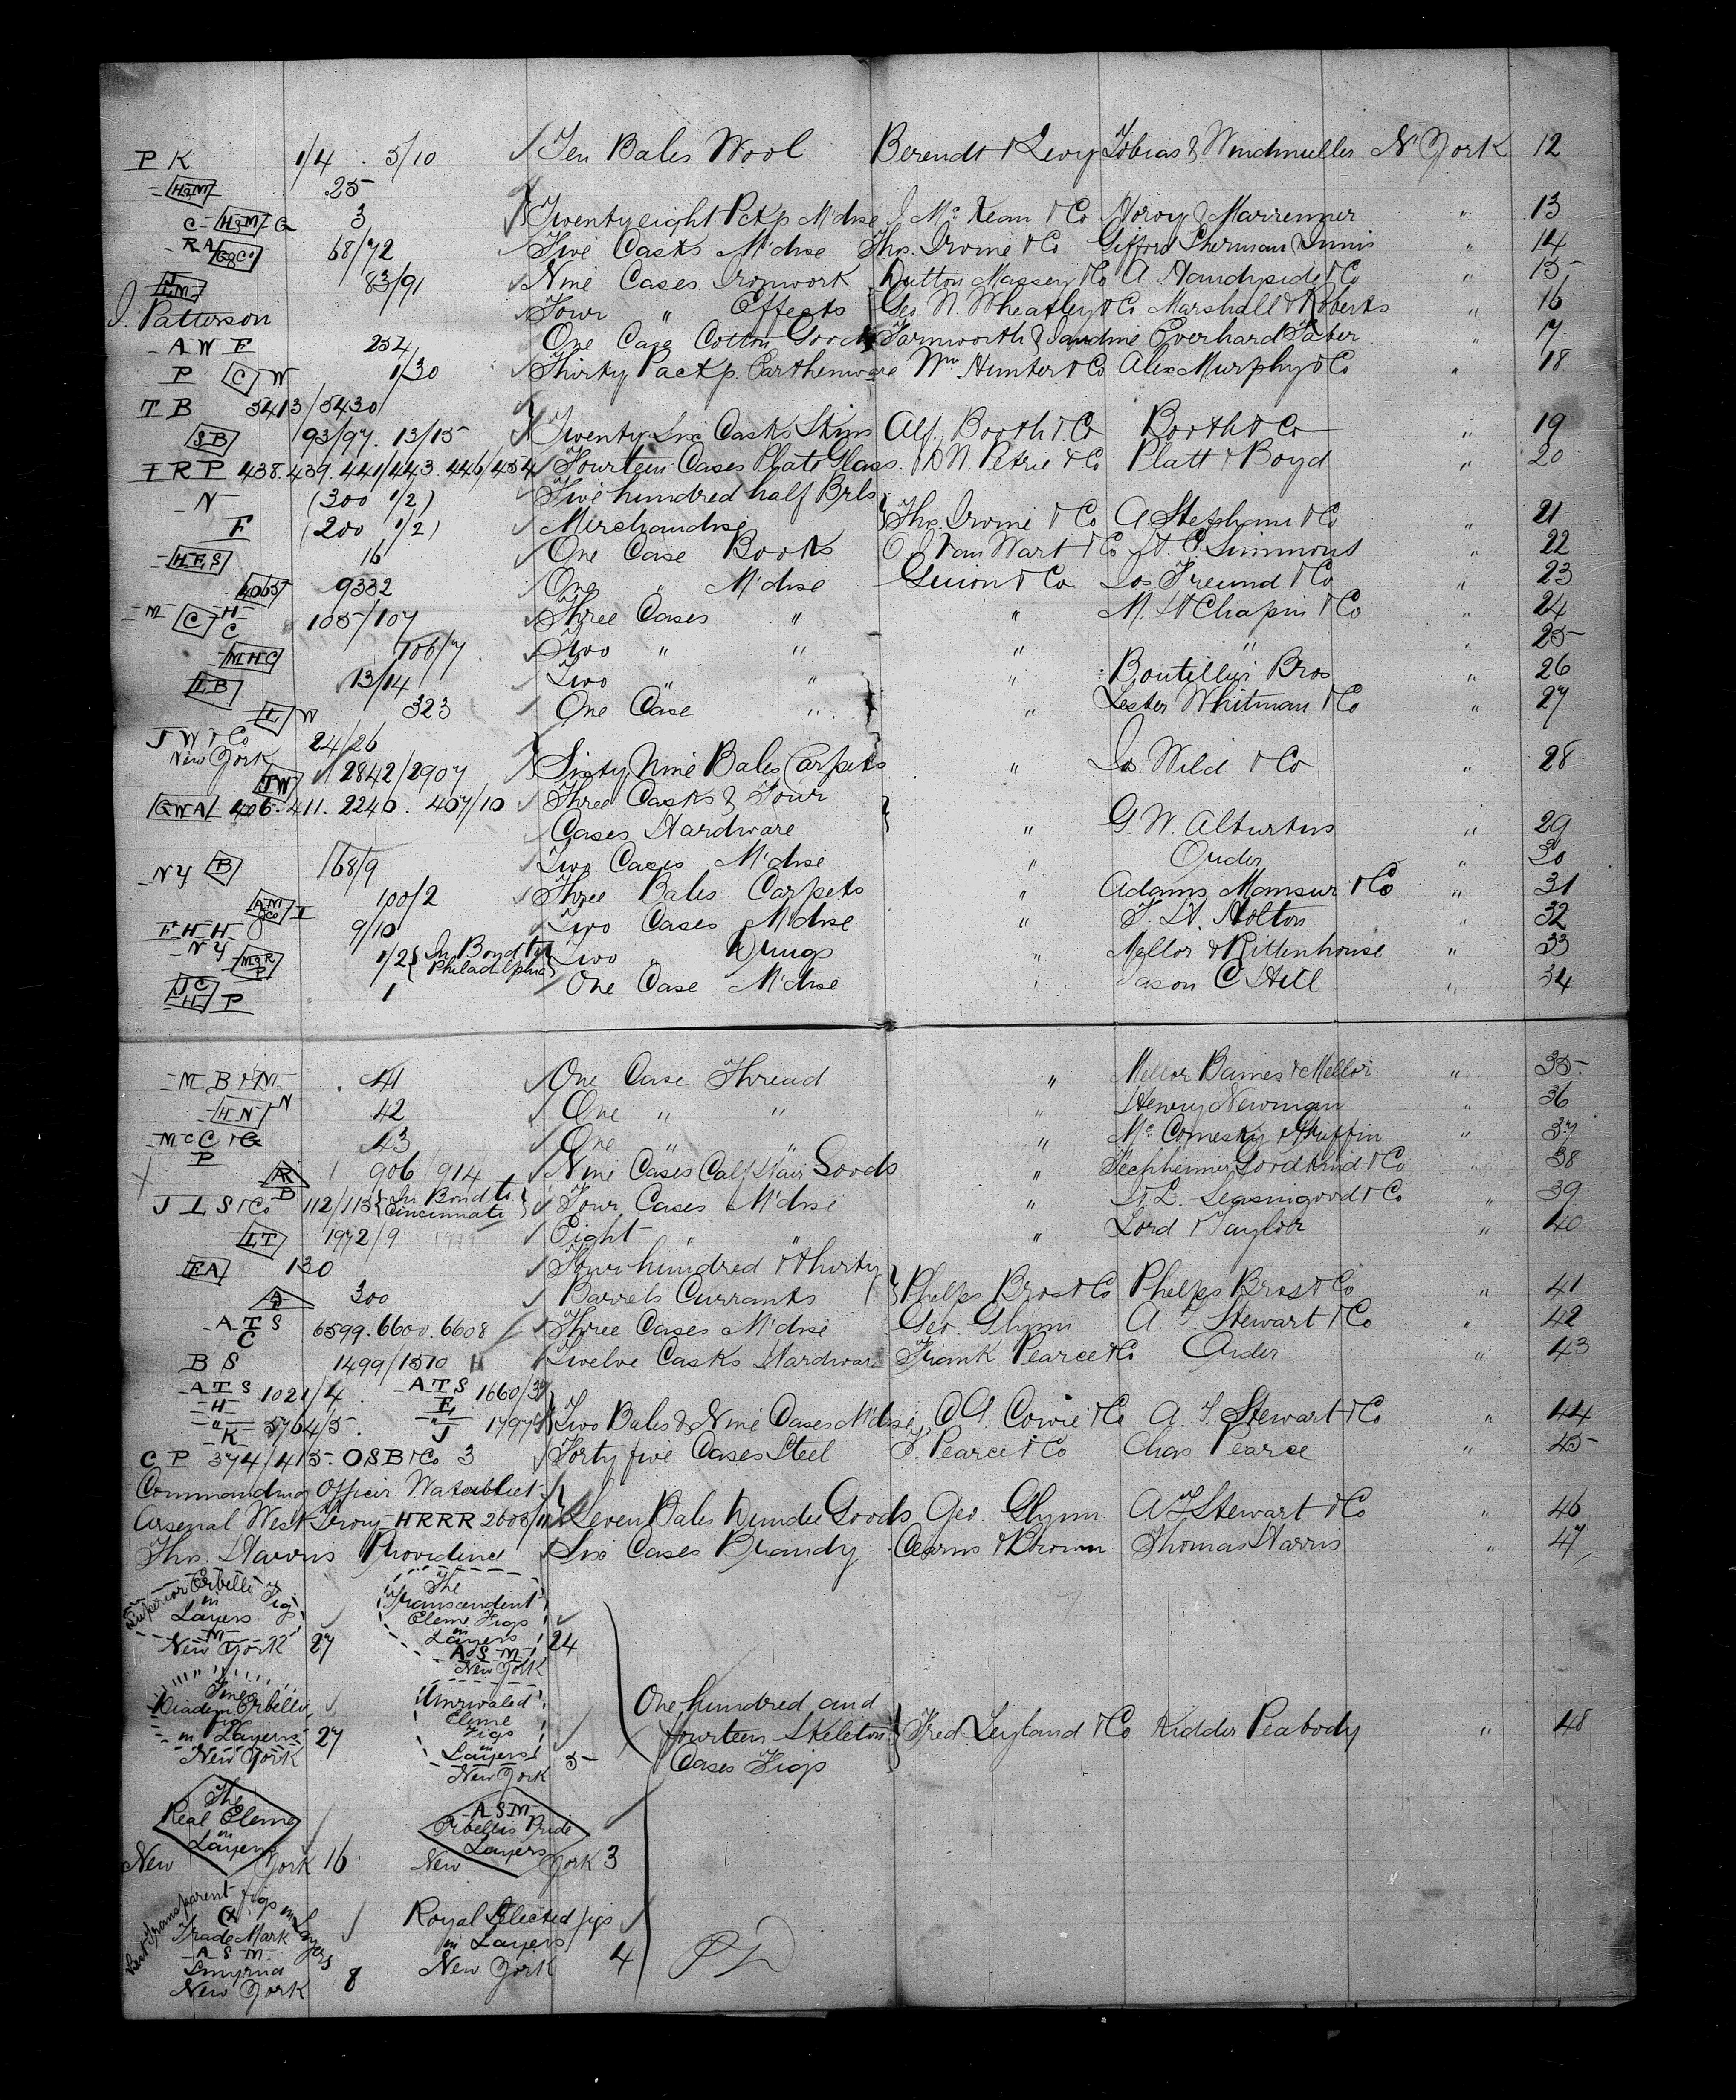 P K 1/4 . 5/10 Ten Bales Wool Berendt & Levy Tobias & Windmuller N York 12
H&M 25
C H&M G 3 Twenty eight Pckgs M'dse J. McKean & Co Noroy & Marrenner " 13
R A G&Co 68/72 Five Casks M'dse Thos. Irvine & Co Gifford Sherman & Innis " 14
83/91 Nine Cases Ironwork Dutton Massey & Co A. Handyside & Co " 15
J. Patterson Four " Effects Geo. N. Wheatley & Co Marshall & Roberts " 16
A W F 254 One Case Cotton Goods Farnworth & Jardine Everhard Faber " 17
P C W 1/30 Thirty Packgs. Earthenware Wm Hunter & Co Alex Murphy & Co " 18
T B 5413/5430
S B 93/97. 13/15 Twenty Six Casks Skins Alf. Booth & Co Booth & Co " 19
F R P 438.439.441/443.446/454 Fourteen Cases Plate Glass. D N. Petrie & Co Platt & Boyd " 20
N (300 1/2) Five hundred half Brls
F (200 1/2) Merchandise Thos. Irvine & Co A Stephens & Co " 21
H E S 16 One Case Books O. J. Van Wart & Co H. E. Simmons " 22
4065 9332 One " M'dse Guion & Co Jos. Freund & Co " 23
M C H C 105/107 Three Cases " " M. H Chapin & Co " 24
M H C 106/7 Two " " " " " 25
L B 13/14 Two " " " Boutillier Bros " 26
L W 323 One Case " " Lester Whitman & Co " 27
J W & Co 24/26
New York
J W 2842/2907 Sixty Nine Bales Carpets " Js. Wild & Co " 28
G W A 406. 411. 2240. 407/10 Three Casks & Four
Cases Hardware " G. W. Alburtus " 29
N Y B 168/9 Two Cases M'dse " Order " 30
A M & Co I 100/2 Three Bales Carpets " Adams Mansur & Co " 31
F H H 9/10 Two Cases M'dse " F. H. Holton " 32
N Y M & R P 1/2 In Bond to Philadelphia Two " Drugs " Mellor & Rittenhouse " 33
J C H P 1 One Case M'dse " Jason C Hill " 34
M B & M 41 One Case Thread " Mellor Baines & Mellor " 35
H N N 42 One " " " Henry Newman " 36
McC & G P 43 One " " " McComesky & Griffin " 37
R B 906/914 Nine Cases Calf Hair Goods " Fechheimer Goodkind & Co " 38
J L S & Co 112/115 In Bond to Cincinnati Four Cases M'dse " Seasongood & Co " 39
L T 1972/9 Eight " " " Lord & Taylor " 40
F A 130 Four hundred & thirty
A 300 Barrels Currants Phelps Bros & Co Phelps Bros & Co " 41
A T S C 6599.6600.6608 Three Cases M'dse Geo. Glynn A. T. Stewart & Co " 42
B S 1499/1510 Twelve Casks Hardware Frank Pearce & Co Order " 43
A T S 1021/4. A T S 1660/3
H F
" K 5764/5. " J Two Bales & Nine Cases M'dse C A. Cowie & Co A. T. Stewart & Co " 44
C P 374/415 O S B & Co 3 Forty five Cases Steel F. Pearce & Co Chas Pearce " 45
Commanding Officer Watervliet
Arsenal West Troy H R R R Seven Bales Dundee Goods Geo. Glynn A T Stewart & Co " 46
Thos. Harris Providence Six Cases Brandy Cearns & Brown Thomas Harris " 47
Superior Erbelli Figs in Layers M New York 27
The Transcendent Eleme Figs in Layers A S M New York 24
Fine Diadem Erbelli in Layers New York 27
Unrivaled Eleme Figs in Layers New York 5
One hundred and
fourteen Skeleton Fred. Leyland & Co Kidder Peabody " 48
Cases Figs
The Real Eleme in Layers New York 16
A S M Erbellis Pride Layers New York 3
Transparent figs in Layers
Trade Mark
A S M
Smyrna
New York 8
Royal Selected figs
in Layers
New York 4